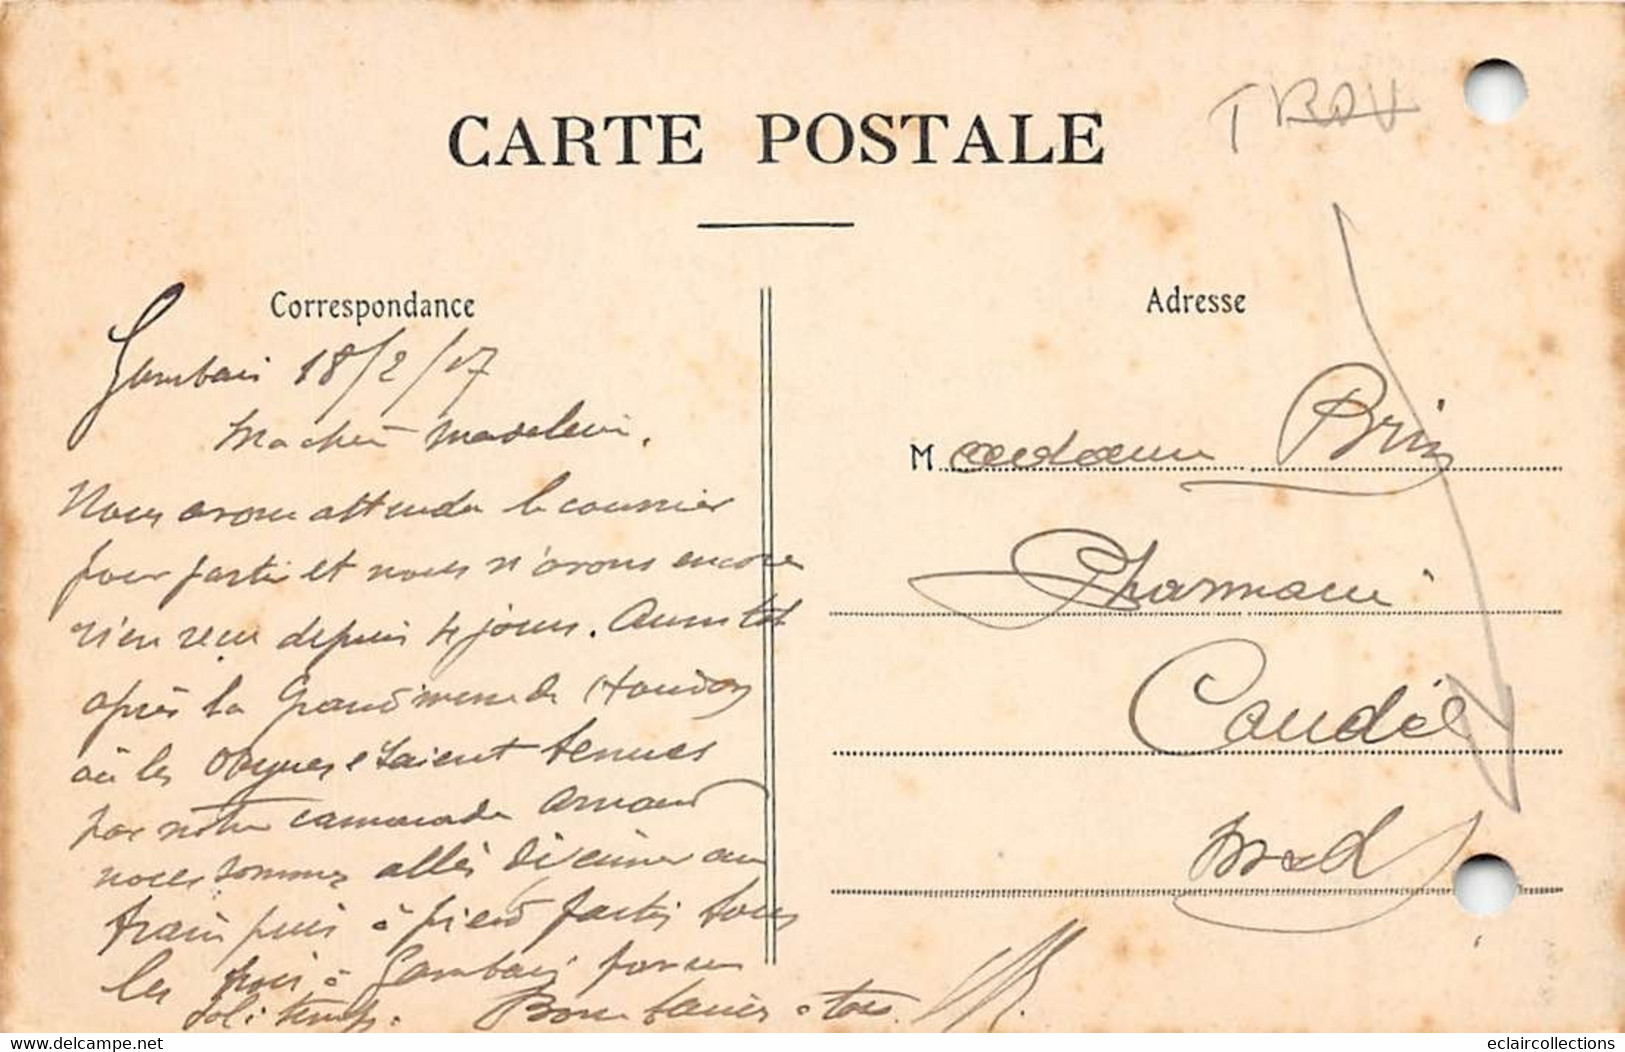 CARTE POSTALE
TROU
Correspondance
Adresse
Gambais 18/2/17
Ma chère Madeleine.
Nous avons attendu le courrier
pour partir et nous n'avons encore
rien reçu depuis 4 jours. Aussitôt
après la Grand'messe de Houdan
où les orgues étaient tenues
par notre camarade Arnaud
nous sommes allés déjeuner au
train puis à pied partis tous
les trois à Gambais par un
joli temps. Bons baisers à tous.
Madame Brin
Pharmacie
Candé
M & L
eclaircollections
www.delcampe.net